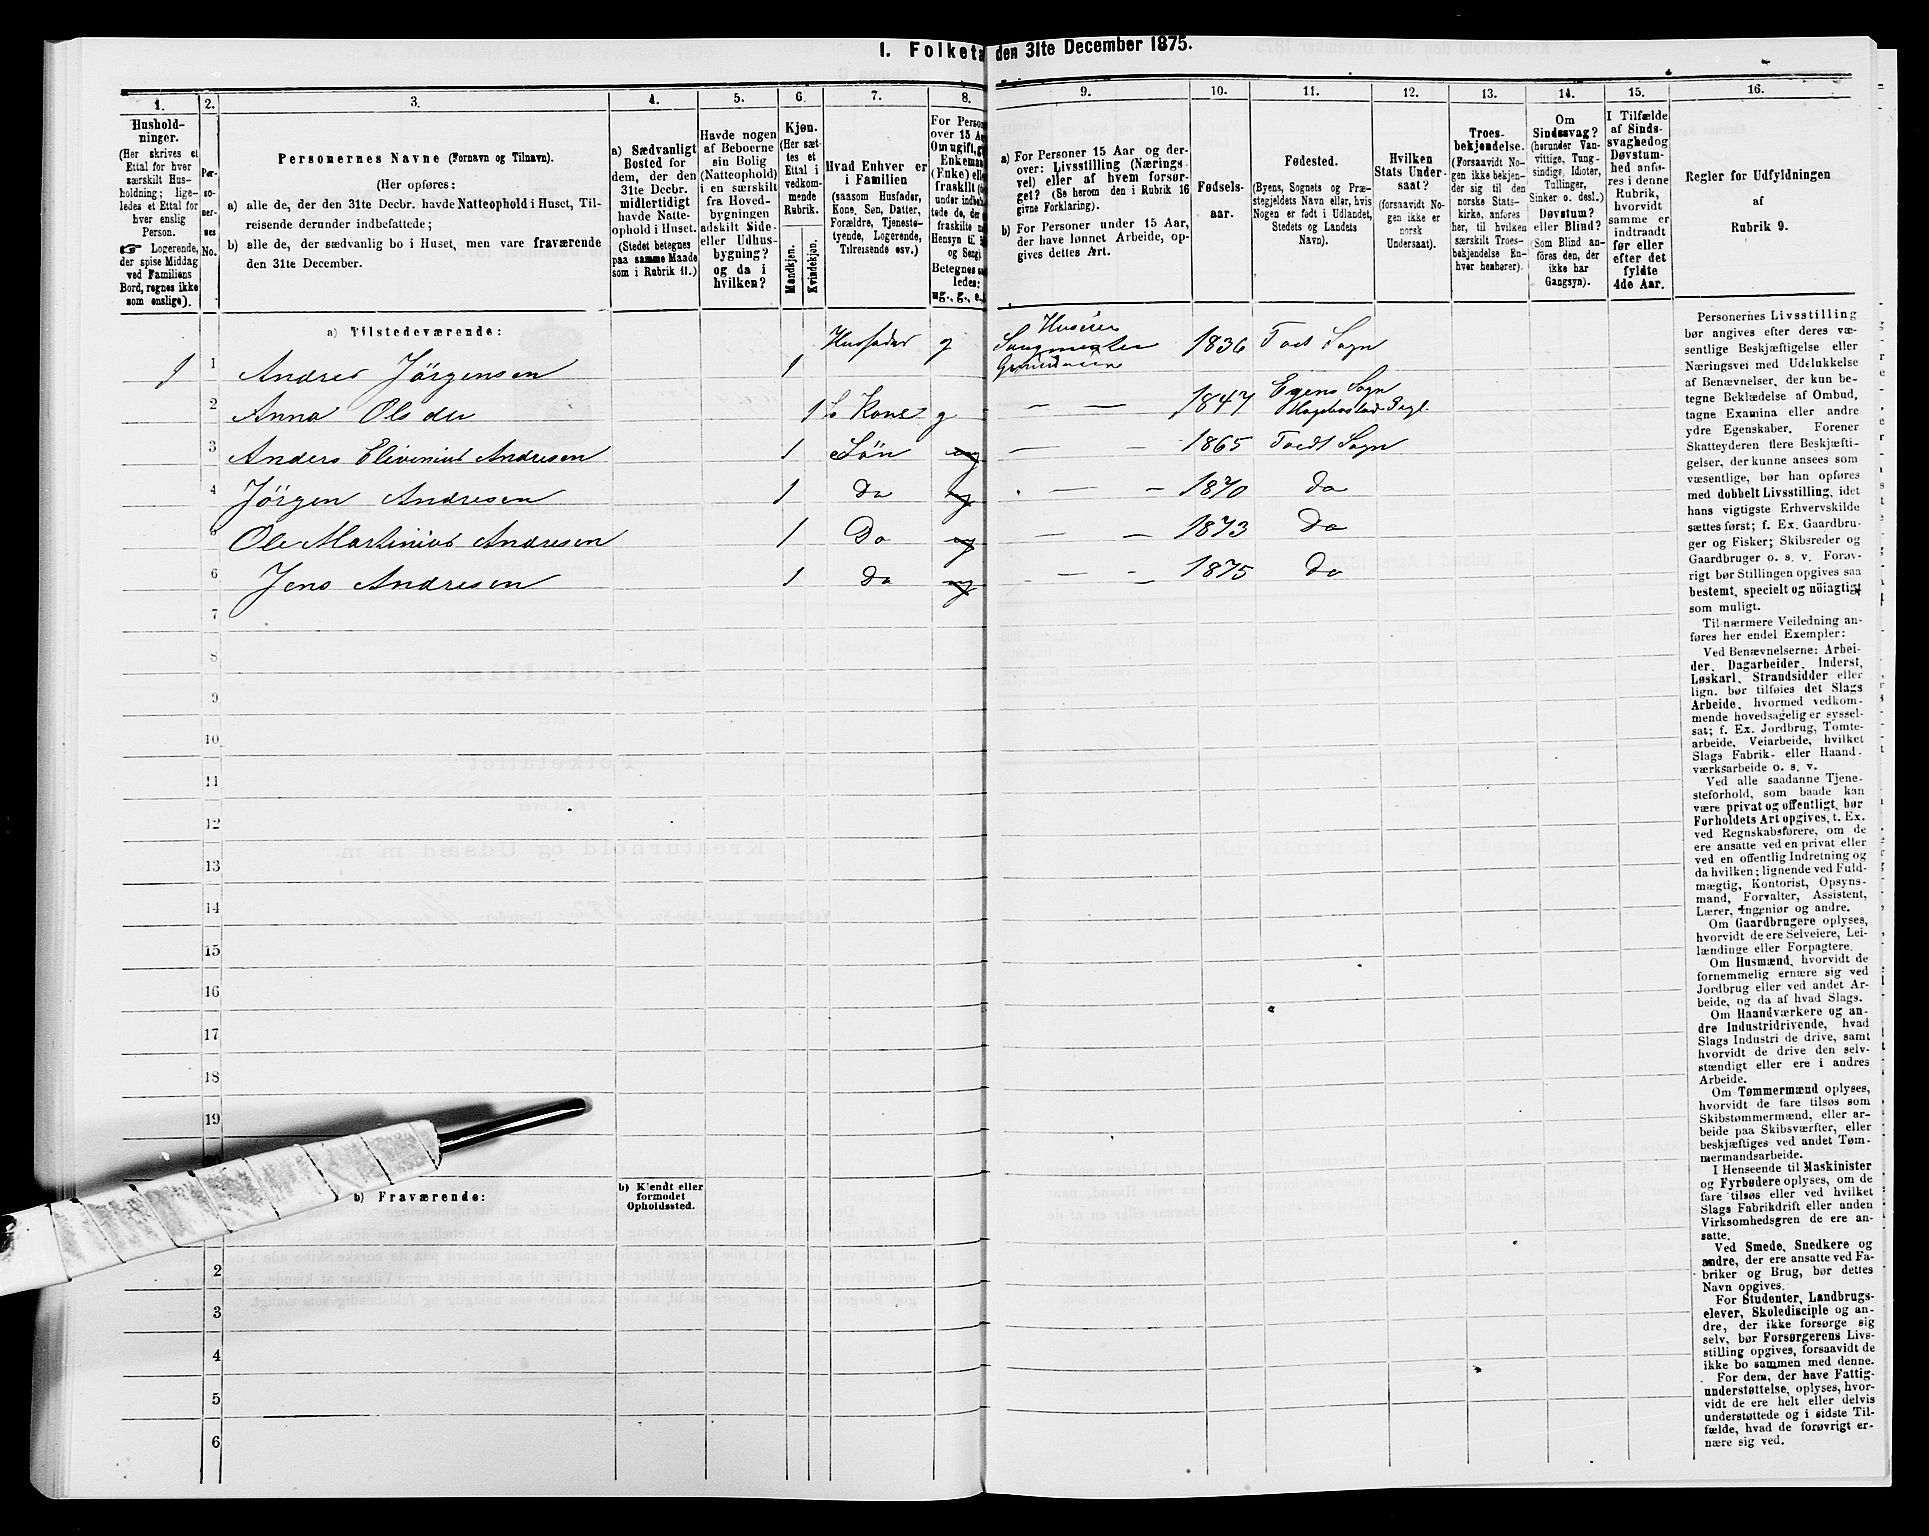 1. Folketa den 31te December 1875.
1.
2.
3.
4.
5.
6.
7.
8.
9.
10.
11.
12.
13.
14.
15.
16.
Hushold-
ninger.
(Her skrives et
Ettal for hver
særskilt Hus-
holdning; lige-
ledes et Ettal for
hver enslig
Person.
☞ Logerende,
der spise Middag
ved Familiens
Bord, regnes ikke
som enslige).
Per-
so-
ner-
nes
No.
Personernes Navne (Fornavn og Tilnavn).
(Her opføres:
a) alle de, der den 31te Decbr. havde Natteophold i Huset, Til-
reisende derunder indbefattede;
b) alle de, der sædvanlig bo i Huset, men vare fraværende
den 31te December.
a) Sædvanligt
Bosted for
dem, der den
31te Decbr.
midlertidigt
havde Natte-
ophold i Huset.
(Stedet betegnes
paa samme Maade
som i Rubrik 11.)
Havde nogen
af Beboerne
sin Bolig
(Natteophold)
i en særskilt
fra Hoved-
bygningen
adskilt Side-
eller Udhus-
bygning?
og da i
hvilken?
Kjøn.
(Her sæt-
tes et
Ettal i
vedkom-
mende
Rubrik.
Mandkjøn.
Kvindekjøn.
Hvad Enhver er
i Familien
(saasom Husfader,
Kone, Søn, Datter,
Forældre, Tjeneste-
tyende, Logerende,
Tilreisende osv.)
For Person
over 15 Aa
Om ugift, g
Enkeman
(Enke) elle
fraskilt
Betegnes saa
ledes:
ug., g., e.,
a) For Personer 15 Aar og der-
over: Livsstilling (Nærings-
vei) eller af hvem forsør-
get? (Se herom den i Rubrik 16
givne Forklaring).
b) For Personer under 15 Aar,
der have lønnet Arbeide, op-
gives dettes Art.
Fødsels-
aar.
Fødested.
(Byens, Sognets og Præ-
stegjeldets Navn eller, hvis
Nogen er født i Udlandet,
Stedets og Landets
Navn).
Hvilken
Stats Under-
saat?
(forsaavidt No-
gen ikke er
norsk
Undersaat).
Troes-
bekjendelse.
(Forsaavidt No-
gen ikke bekjen-
der sig til den
norske Stats-
kirke, anføres
her, til hvilken
særskilt Troes-
bekjendelse En-
hver henhører).
Om
Sindssvag?
(herunder Van-
vittige, Tung-
sindige, Idioter,
Tullinger,
Sinker o. desl.)
Døvstum?
eller Blind?
(Som Blind an-
føres den, der
ikke har
Gangsyn).
I Tilfælde
af Sinds-
svaghed og
Døvstum-
hed anfø-
res i denne
Rubrik,
hvorvidt
samme er
indtraadt
før eller
efter det
fyldte
4de Aar.
Regler for Udfyldningen
af
Rubrik 9.
a) Tilstedeværende:
1 1 Andres Jörgensen 1 Husfader g Huseier Saugmester Gaardmand 1836 Foss Sogn
2 Anna Olsdtr 1 Kone g — — 1847 Egens Sogn Hægebostad Prgl.
3 Anders Elivinius Andresen 1 Sön ug — — 1865 Sogn
4 Jörgen Andresen 1 Do ug — — 1870 Do
5 Ole Martinius Andresen 1 Do ug — — 1873 Do
6 Jens Andresen 1 Do ug — — 1875 Do
7
8
9
10
11
12
13
14
15
16
17
18
19
b) Fraværende:
b) Kjendt eller
formodet
Opholdssted.
2
3
4
5
6
Personernes Livsstilling
bør angives efter deres væ-
sentlige Beskjæftigelse eller
Næringsvei med Udelukkelse
af Benævnelser, der kun be-
tegne Beklædelse af Ombud,
tagne Examina eller andre
ydre Egenskaber. Forener
Skatteyderen flere Beskjæfti-
gelser, der kunne ansees som
væsentlige, bør han opføres
med dobbelt Livsstilling, idet
hans vigtigste Erhvervskilde
sættes først; f. Ex. Gaardbru-
ger og Fisker; Skibsreder og
Gaardbruger o. s. v. Forøv-
rigt bør Stillingen opgives saa
bestemt, specielt og nöiagtigt
som muligt.
Til nærmere Veiledning an-
føres her endel Exempler:
Ved Benævnelserne: Arbei-
der, Dagarbeider, Inderst,
Løskarl, Strandsidder eller
lign. bør tilføies det Slags
Arbeide, hvormed vedkom-
mende hovedsagelig er syssel-
sat; f. Ex. Jordbrug, Tomte-
arbeide, Veiarbeide, hvilket
Slags Fabrik- eller Haand-
værksarbeide o. s. v.
Ved alle saadanne Tjene-
steforhold, som baade kan
være privat og offentligt, bør
Forholdets Art opgives, t. Ex.
ved Regnskabsførere, om de
ere ansatte ved en privat eller
ved en offentlig Indretning og
da hvilken; lignende ved Fuld-
mægtig, Kontorist, Opsyns-
mand, Forvalter, Assistent,
Lærer, Ingeniør og andre.
Om Gaardbrugere oplyses,
hvorvidt de ere Selveiere, Lei-
lændinge eller Forpagtere.
Om Husmænd, hvorvidt de
fornemmelig ernære sig ved
Jordbrug eller ved andet Ar-
beide, og da af hvad Slags.
Om Haandværkere og an-
dre Industridrivende, hvad
Slags Industri de drive, samt
hvorvidt de drive den selv-
stændigt eller ere i andres
Arbeide.
Om Tømmermænd oplyses,
hvorvidt de fare tilsøs som
Skibstømmermænd, eller ar-
beide paa Skibsværfter, eller
beskjæftiges ved andet Tøm-
mermandsarbeide.
I Henseende til Maskinister
og Fyrbødere oplyses, om de
fare tilsøs eller ved hvilket
Slags Fabrikdrift eller anden
Virksomhedsgren de ere an-
satte.
Ved Smede, Snedkere og
andre, der ere ansatte ved Fa-
briker og Brug, bør dettes
Navn opgives.
For Studenter, Landbrugs-
elever, Skoledisciple og an-
dre, der ikke forsørge sig
selv, bør Forsørgerens Livs-
stilling opgives, forsaavidt de
ikke bo sammen med denne.
For dem, der have Fattig-
understøttelse, oplyses, hvor-
vidt de ere helt eller delvis
understøttede og i sidste Til-
fælde, hvad de forøvrigt er-
nære sig ved.